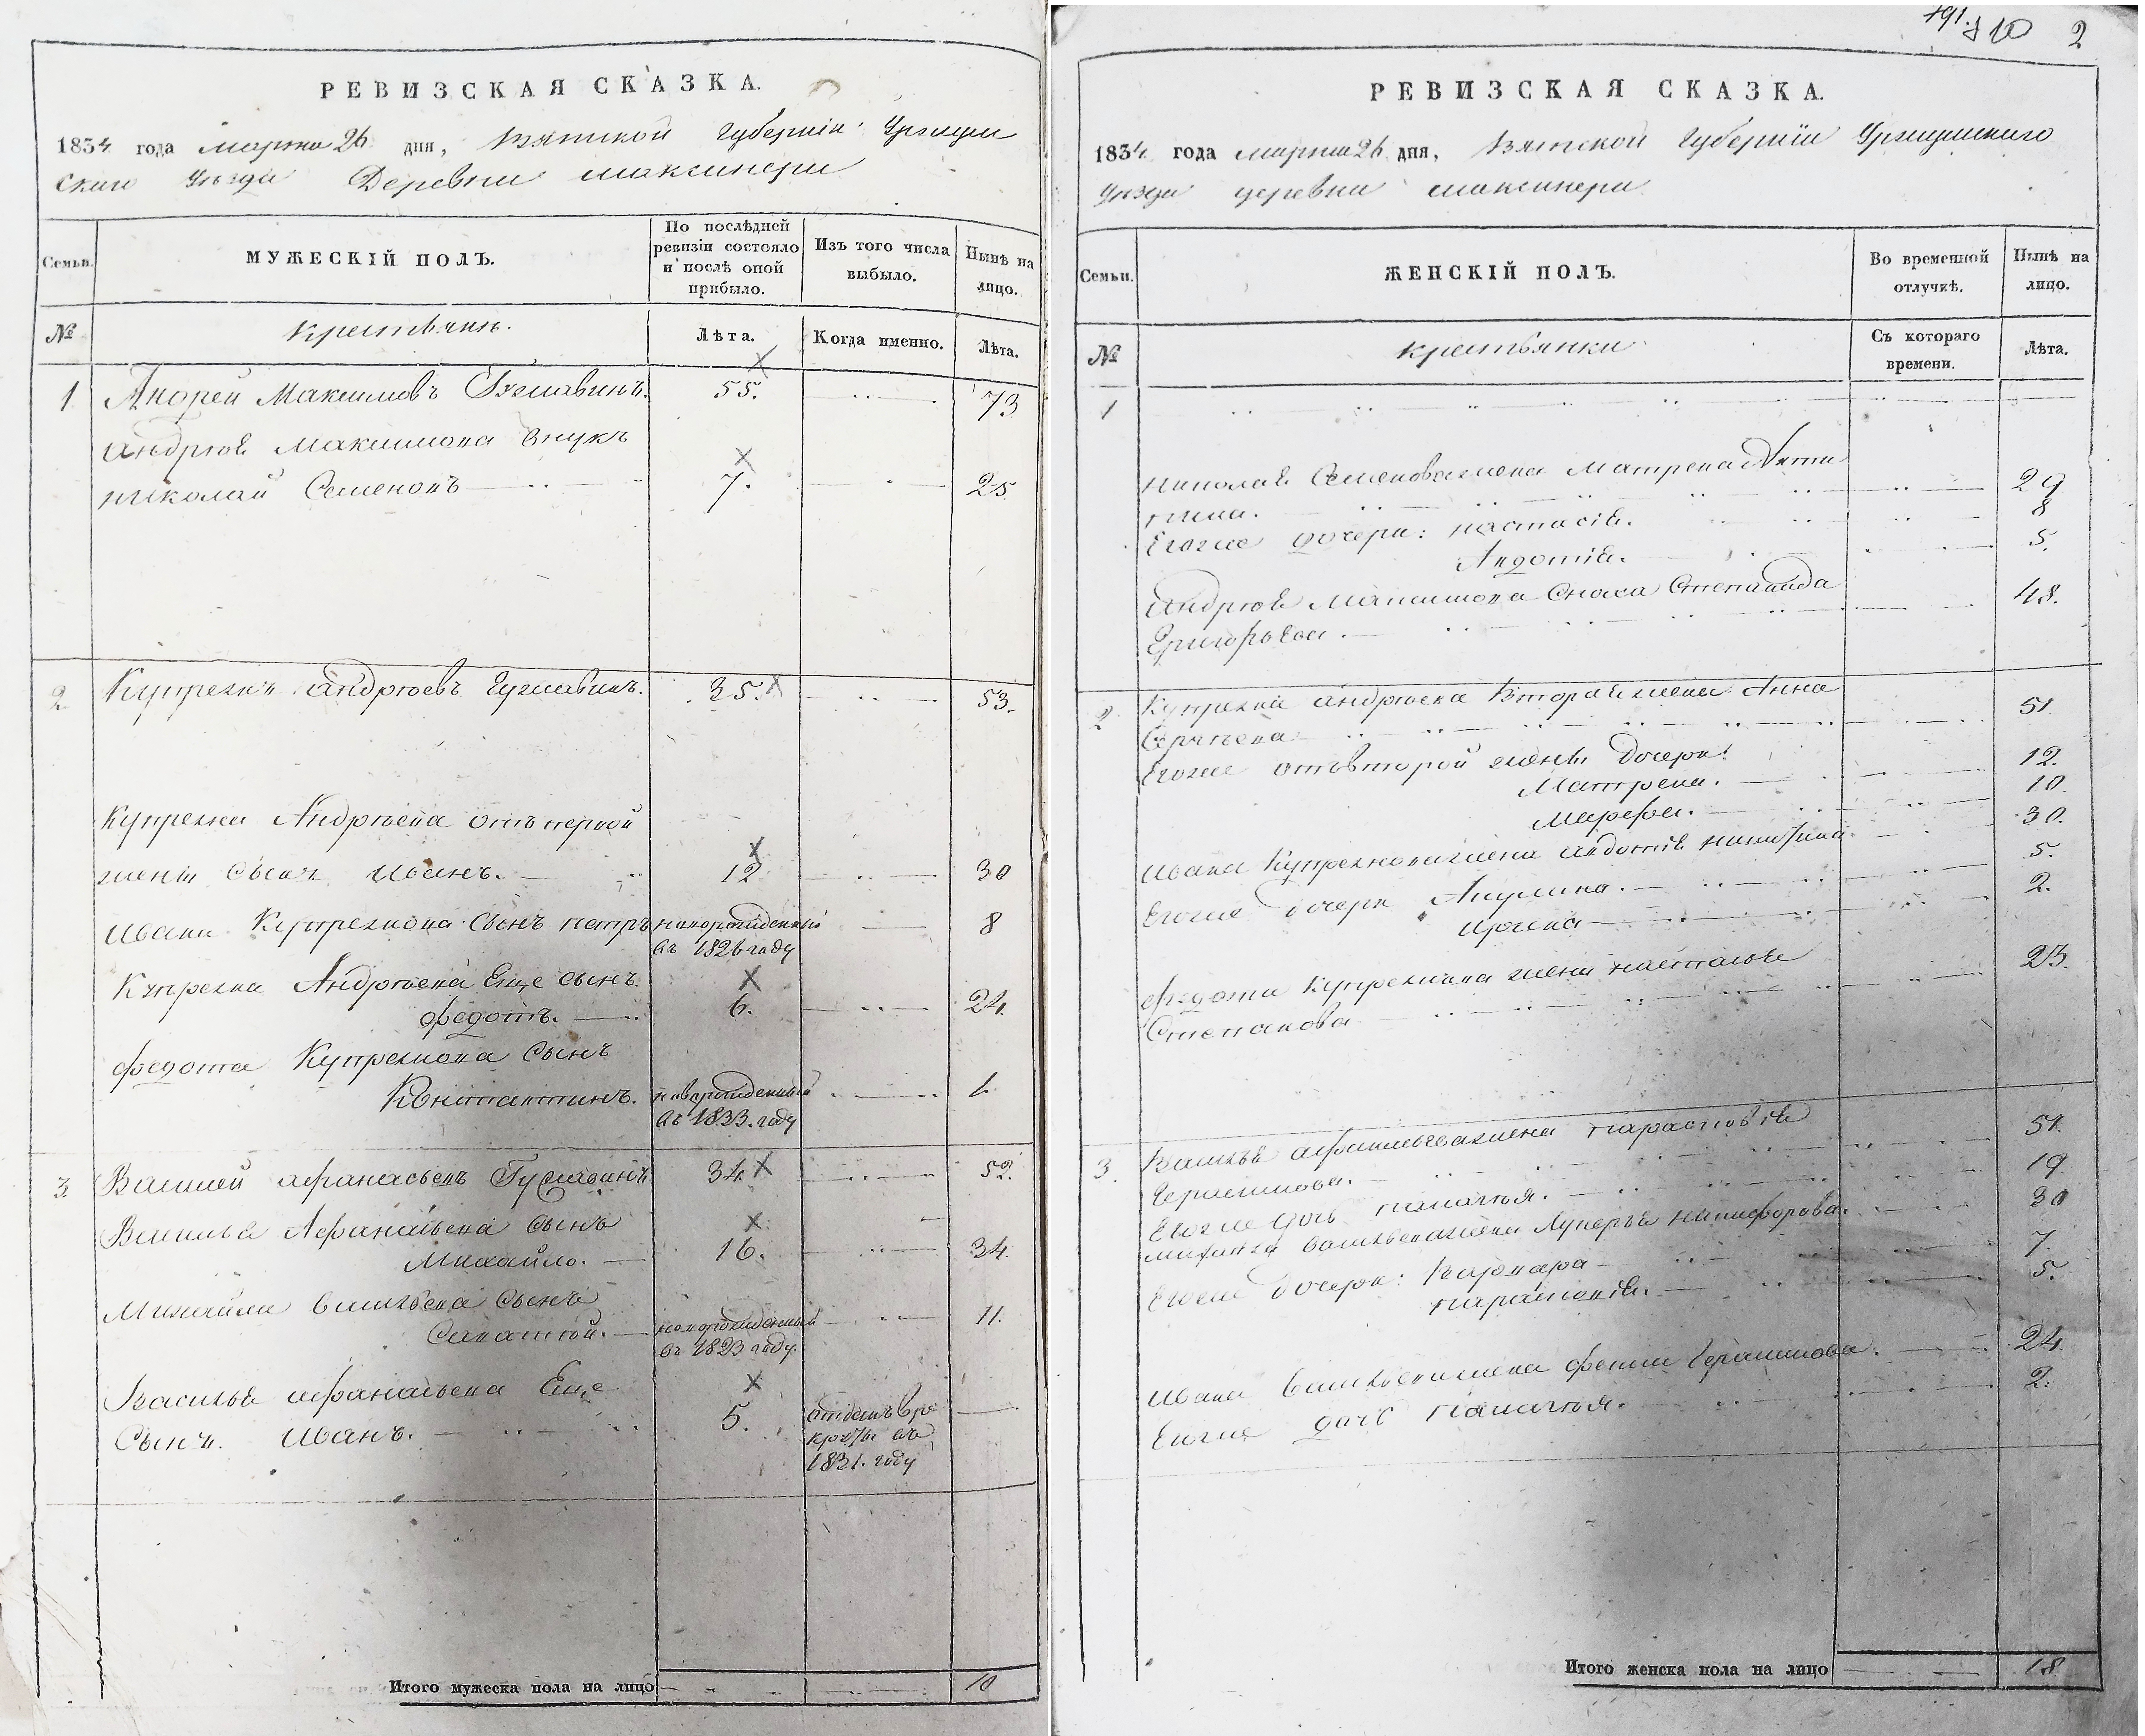 РЕВИЗСКАЯ СКАЗКА.
1834 года марта 26 дня, Вятской Губернии Уржум
скаго Уѣзда Деревни Максинери
Семьи.
МУЖЕСКІЙ ПОЛЪ.
По послѣдней ревизіи состояло и послѣ оной прибыло.
Изъ того числа выбыло.
Нынѣ на лицо.
№
Крестьянъ.
Лѣта.
Когда именно.
Лѣта.
1 Андрей Максимовъ 55. 73
Андрѣя Максимова внукъ
Николай Семеновъ 7. 25.
2 Купреянъ Андрѣевъ 35. 53.
Купреяна Андрѣева отъ первой
жены сынъ Иванъ. 12 30
Ивана Купреянова сынъ Петръ новорожденный 8
въ 1826 году
Купреяна Андрѣева Еще сынъ
Федотъ. 6. 24.
Федота Купреянова сынъ
Константинъ. новорожденный 1.
въ 1833. году
3. Василей Афанасьевъ 34. 52.
Василья Афанасьева сынъ
Михайло. 16. 34.
Михайла Васильева сынъ
новорожденный 11.
въ 1823 году
Василья Афанасьева Еще
сынъ. Иванъ. 5. отданъ въ ре
круты въ
1831. году
Итого мужеска пола на лицо 10
2
РЕВИЗСКАЯ СКАЗКА.
1834 года марта 26 дня, Вятской Губерніи Уржумскаго
Уѣзда деревни Максинери
Семьи.
ЖЕНСКІЙ ПОЛЪ.
Во временной отлучкѣ.
Нынѣ на лицо.
№
Крестьянки
Съ котораго времени.
Лѣта.
1
Николая Семенова жена Матрена 29
Егоже дочери: Настасія. 8
Авдотія. 5.
Андрѣя Максимова сноха Степанида
Григорьева. 48.
2 Купреяна Андрѣева вторая жена Анна
Сергѣева 51
Егоже отъ второй жены дочери:
Матрена. 12.
Марфа. 10.
Ивана Купреянова жена Авдотія 30.
Егоже дочери Акулина. 5.
Ирина 2.
Федота Купреянова жена Наталья
Степанова 23.
3. Василья Афанасьева жена Парасковія
Герасимова. 51.
Егоже дочь Палагья. 19
Михайла Васильева жена Никифорова. 30
Егоже дочери: Варвара 7.
Парасковія. 5.
Ивана Васильева жена Герасимова. 24
Егоже дочь Палагья. 2.
Итого женска пола на лицо 18